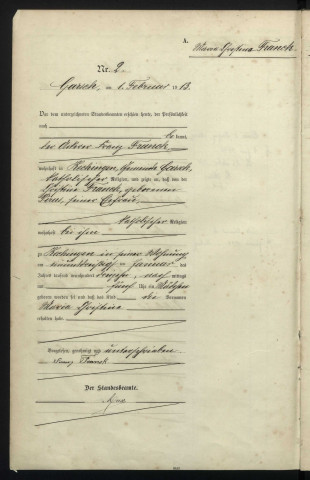 A.
Maria Christina Franck
Nr. 2.
Garsch, am 1. Februar 1913.
Vor dem unterzeichneten Standesbeamten erschien heute, der Persönlichkeit
nach
be kannt,
der Ackerer Franz Franck
wohnhaft in Rechingen Gemeinde Garsch,
katholischer Religion, und zeigte an, daß von der
Christina Franck, geborenen
seiner Ehefrau
katholischer Religion
wohnhaft bei ihm
zu Rechingen in seiner Wohnung
am Januar des
Jahres tausend neunhundert nach mittags
um fünf Uhr ein Mädchen
geboren worden sei und daß das Kind die Vornamen
Maria Christina
erhalten habe.
Vorgelesen, genehmigt und unterschrieben
Franz Franck
Der Standesbeamte.